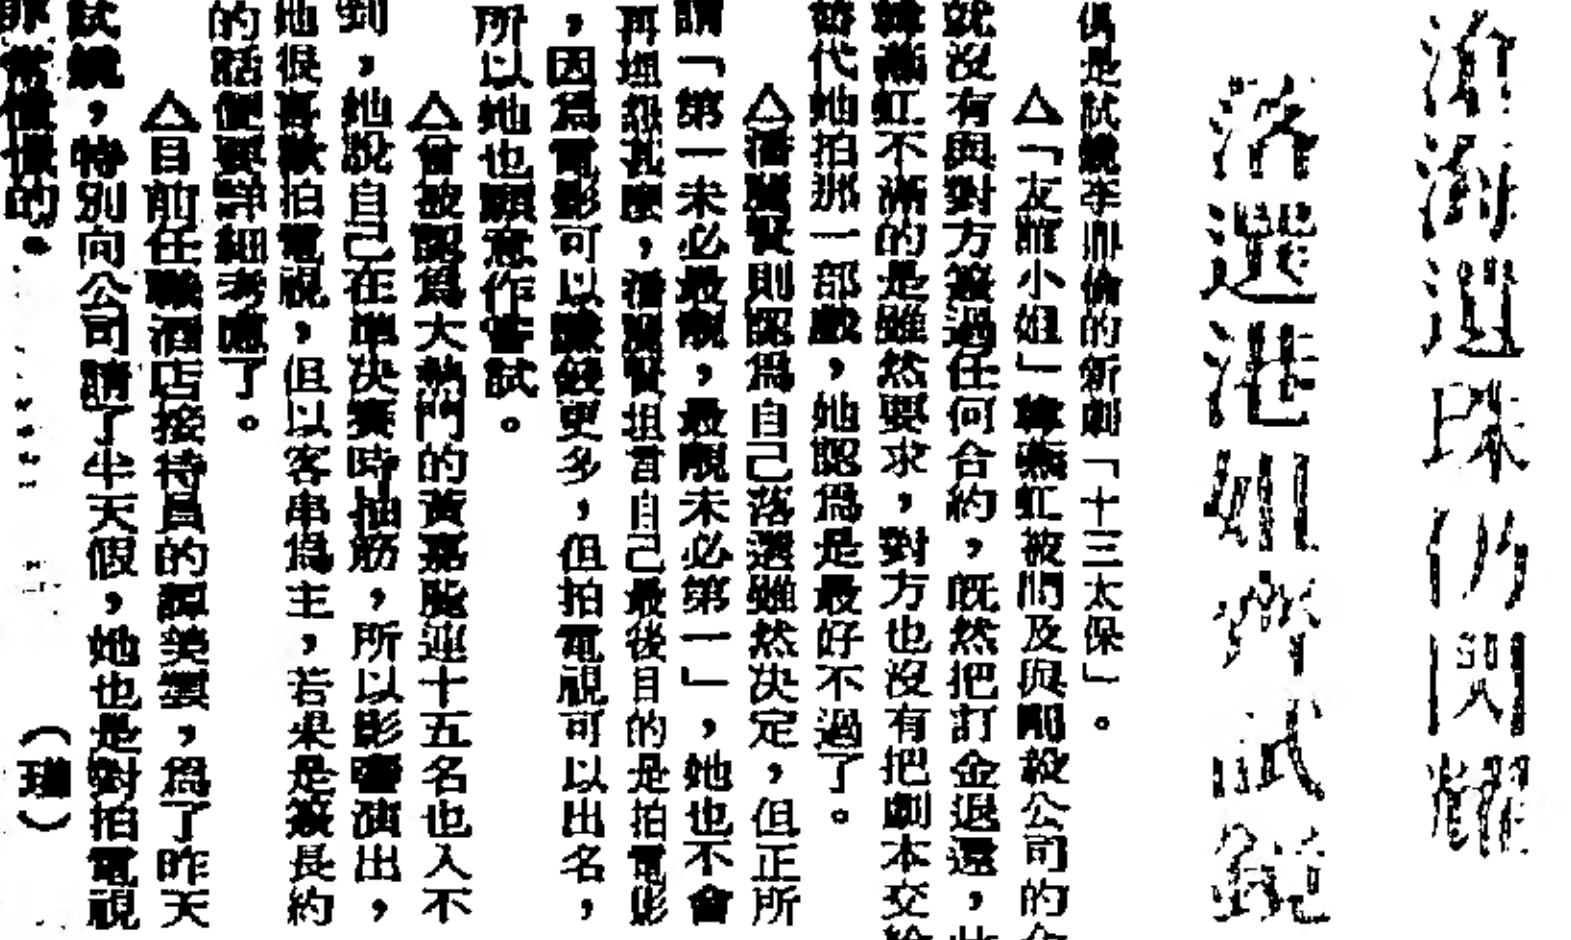 滄海遺珠仍閃耀
落選港姐齊試鏡
俱是試鏡李鼎倫的新劇「十三太保」。
△「友誼小姐」韓燕虹被問及與剛毅公司的合
就沒有與對方簽過任何合約，既然把訂金退還，此
韓燕虹不滿的是雖然要求，對方也沒有把劇本交給
替代她拍那一部戲，她認爲是最好不過了。
△潘麗賢則認爲自己落選雖然決定，但正所
謂「第一未必最靚，最靚未必第一」，她也不會
再埋怨甚麼，潘麗賢坦言自己最後目的是拍電影
，因爲電影可以發揮更多，但拍電視可以出名，
所以她也願意作嘗試。
△曾被認爲大熱門的黃嘉麗連十五名也入不
到，她說自己在準決賽時抽筋，所以影響演出，
她很喜歡拍電視，但以客串爲主，若果是簽長約
的話便要詳細考慮了。
△目前任職酒店接待員的譚美雲，爲了昨天
試鏡，特別向公司請了半天假，她也是對拍電視
非常憧憬的。（瑾）